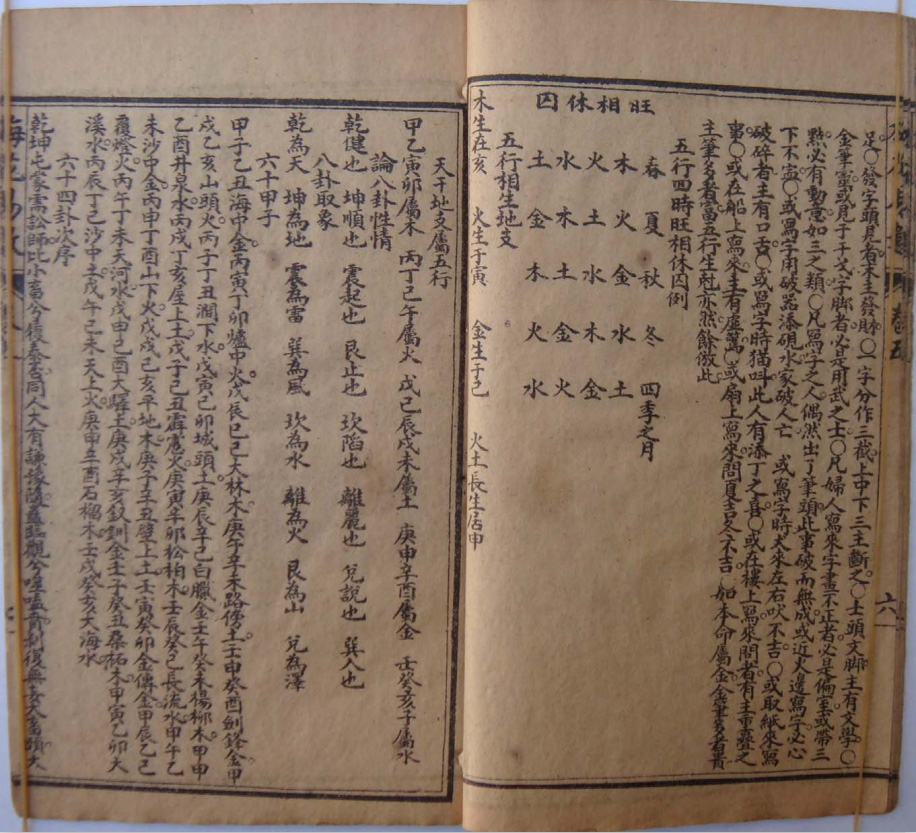 足〇發字頭見者末主發財〇一字分作三截上中下三主斷之〇士頭文脚主有文學〇
金筆靈或見于干戈字脚者必是用武之士〇凡婦人寫來字畫不正者必是偏室或帶三
點必有動意如三之類〇凡寫字之人偶然出了筆頭此事破而無成或近火邊寫字必心
下不寧〇或寫字用破器添硯水家破人亡 或寫字時犬來左右吠不吉〇或取紙來寫
破碎者主有口舌〇或寫字時猫叫此人有添丁之喜〇或在樓上寫來問者有主重疊之
事〇或在船上寫來主有虛驚〇或扇上寫來問夏吉冬不吉 如本命屬金金筆多者貴
土筆多者富五行生尅亦然餘倣此
五行四時旺相休囚例
旺相休囚
春 夏 秋 冬 四季之月
木 火 金 水 土
火 土 水 木 金
水 木 土 金 火
土 金 木 火 水
五行相生地支
木生在亥 火生于寅 金生于巳 水土長生居申
天干地支屬五行
甲乙寅卯屬木 丙丁巳午屬火 戊己辰戌未屬土 庚申辛酉屬金 壬癸亥子屬水
論八卦性情
乾健也 坤順也 震起也 艮止也 坎陷也 離麗也 兌說也 巽入也
八卦取象
乾為天 坤為地 震為雷 巽為風 坎為水 離為火 艮為山 兌為澤
六十甲子
甲子乙丑海中金丙寅丁卯爐中火戊辰己巳大林木庚午辛未路傍土壬申癸酉劍鋒金甲
戌乙亥山頭火丙子丁丑澗下水戊寅己卯城頭土庚辰辛巳白臘金壬午癸未楊柳木甲申
乙酉井泉水丙戌丁亥屋上土戊子己丑霹靂火庚寅辛卯松柏木壬辰癸巳長流水甲午乙
未沙中金丙申丁酉山下火戊戌己亥平地木庚子辛丑壁上土壬寅癸卯金傳金甲辰乙巳
覆燈火丙午丁未天河水戊申己酉大驛土庚戌辛亥釵釧金壬子癸丑桑柘木甲寅乙卯大
溪水丙辰丁巳沙中土戊午己未天上火庚申辛酉石榴木壬戌癸亥大海水
六十四卦次序
乾坤屯蒙需訟師比小畜兮履泰否同人大有謙豫隨蠱臨觀兮噬嗑賁剝復無妄大畜頤大